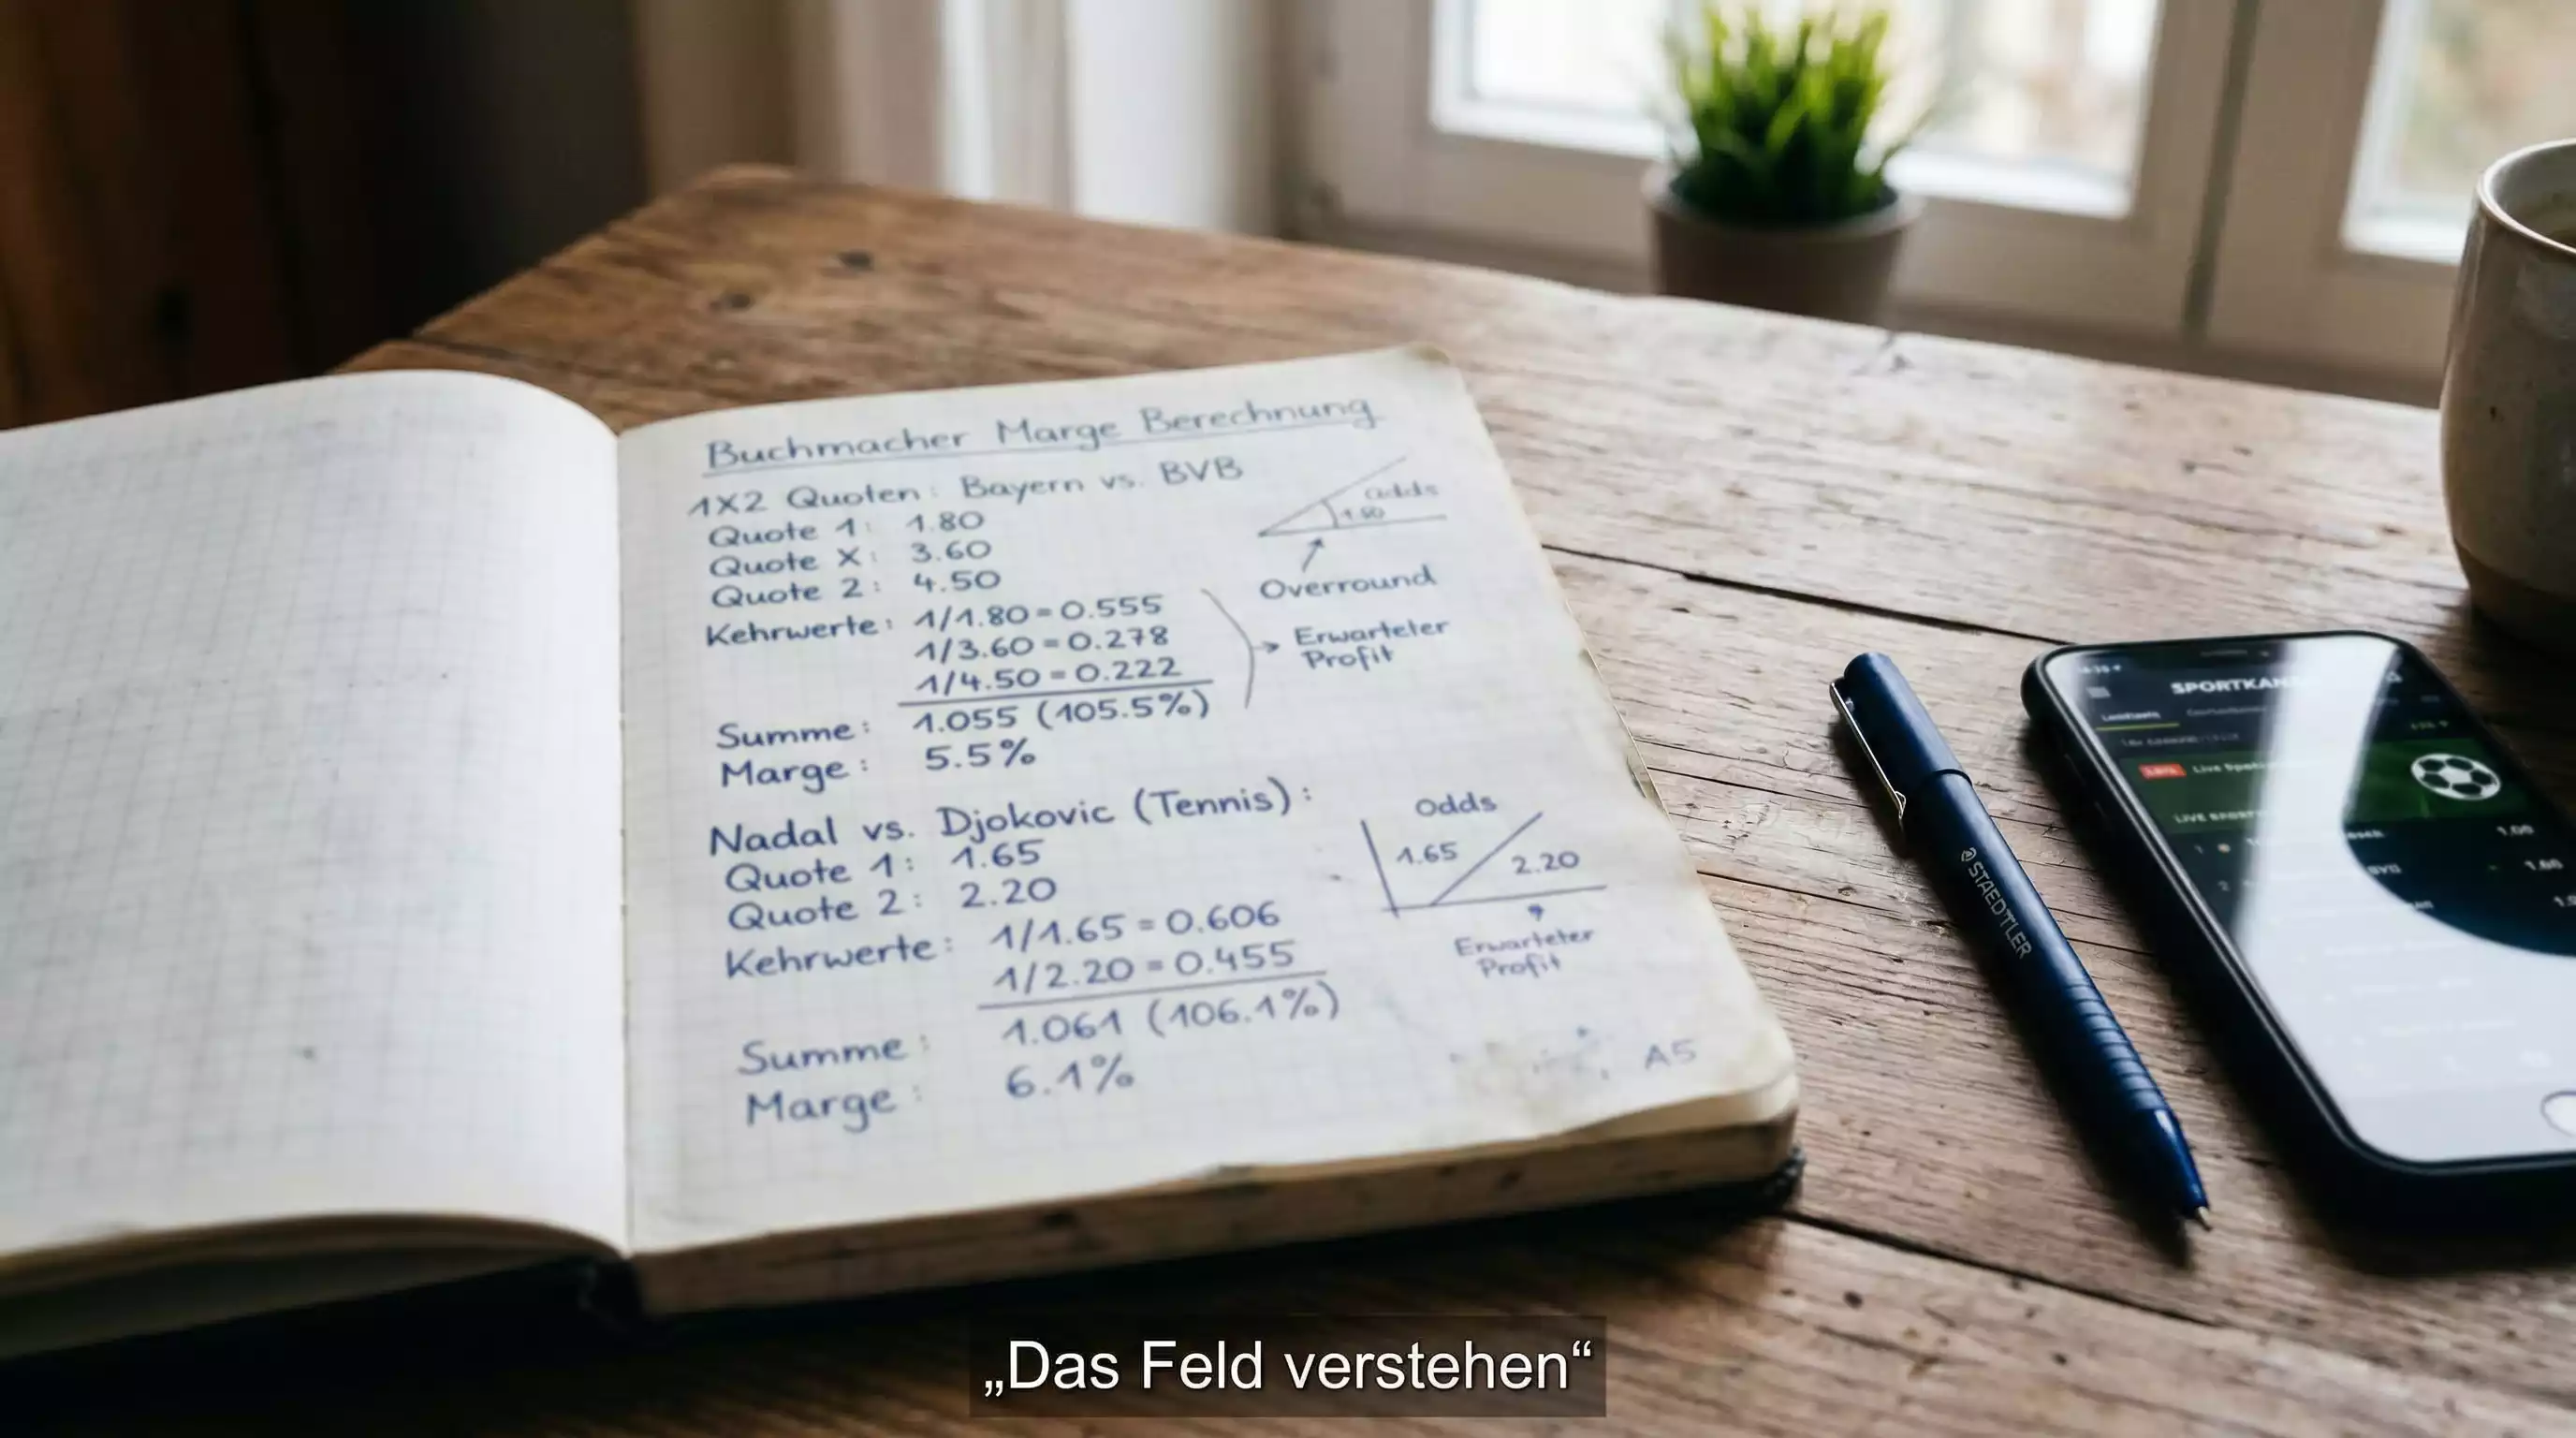 Buchmacher Marge Berechnung
1X2 Quoten: Bayern vs. BVB
Quote 1: 1.80
Quote X: 3.60
Quote 2: 4.50
Kehrwerte: 1/1.80 = 0.555
1/3.60 = 0.278
1/4.50 = 0.222
Summe: 1.055 (105.5%)
Marge: 5.5%
odds
1.80
Overround
Erwarteter
Profit
Nadal vs. Djokovic (Tennis):
Quote 1: 1.65
Quote 2: 2.20
Kehrwerte: 1/1.65 = 0.606
1/2.20 = 0.455
Summe: 1.061 (106.1%)
Marge: 6.1%
Odds
1.65
2.20
Erwarteter
Profit
A5
STAEDTLER
Live
„Das Feld verstehen“